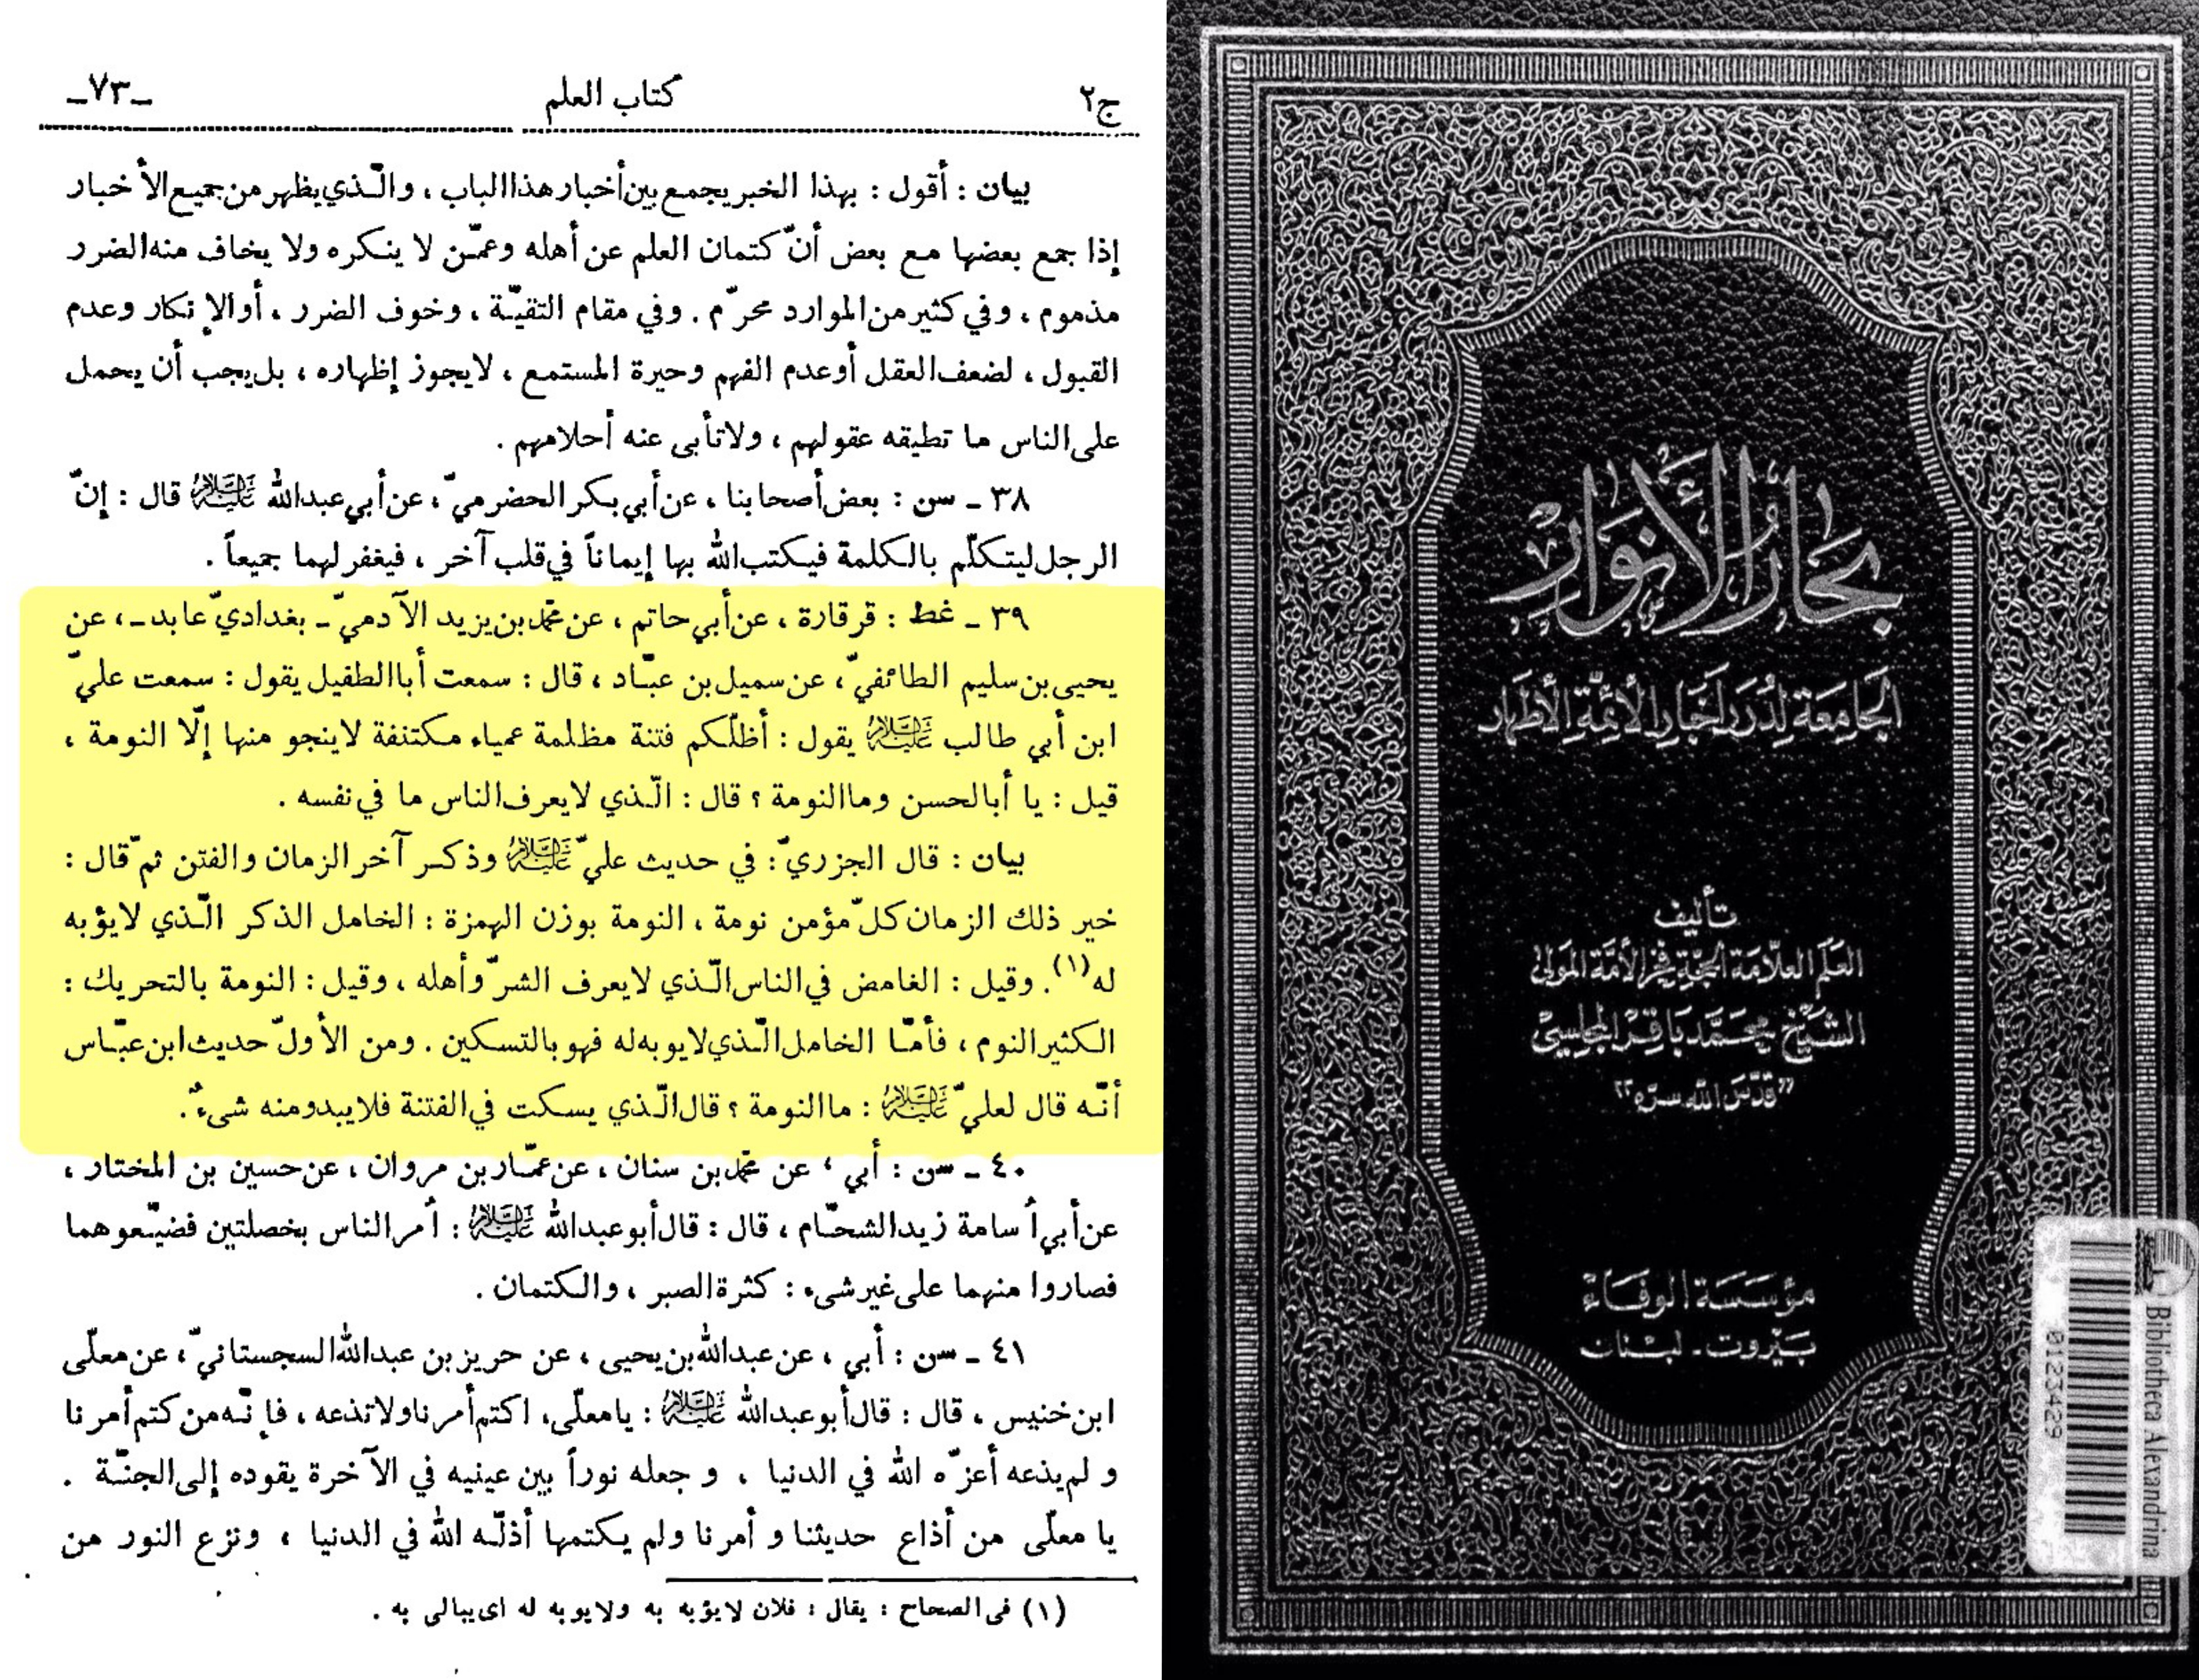 ج٢ كتاب العلم -٧٣-
بيان : أقول : بهذا الخبر يجمع بين أخبار هذا الباب ، والّذي يظهر من جميع الأخبار
إذا جمع بعضها مع بعض أنّ كتمان العلم عن أهله وعمّن لا ينكره ولا يخاف منه الضرر
مذموم ، وفي كثير من الموارد محرّم . وفي مقام التقيّة ، وخوف الضرر ، أو الإنكار وعدم
القبول ، لضعف العقل أو عدم الفهم وحيرة المستمع ، لا يجوز إظهاره ، بل يجب أن يحمل
على الناس ما تطيقه عقولهم ، ولا تأبى عنه أحلامهم .
٣٨ - سن : بعض أصحابنا ، عن أبي بكر الحضرميّ ، عن أبي عبدالله عليه السلام قال : إنّ
الرجل ليتكلّم بالكلمة فيكتب الله بها إيماناً في قلب آخر ، فيغفر لهما جميعاً .
٣٩ - غط : قرقارة ، عن أبي حاتم ، عن محمّد بن يزيد الآدميّ - بغداديّ عابد - ، عن
يحيى بن سليم الطائفيّ ، عن سميل بن عبّاد ، قال : سمعت أبا الطفيل يقول : سمعت عليّ
ابن أبي طالب عليه السلام يقول : أظلّكم فتنة مظلمة عمياء مكتنفة لا ينجو منها إلّا النومة ،
قيل : يا أبا الحسن وما النومة ؟ قال : الّذي لا يعرف الناس ما في نفسه .
بيان : قال الجزريّ : في حديث عليّ عليه السلام وذكر آخر الزمان والفتن ثمّ قال :
خير ذلك الزمان كلّ مؤمن نومة ، النومة بوزن الهمزة : الخامل الذكر الّذي لا يؤبه
له (١) . وقيل : الغامض في الناس الّذي لا يعرف الشرّ وأهله ، وقيل : النومة بالتحريك :
الكثير النوم ، فأمّا الخامل الّذي لا يوبه له فهو بالتسكين . ومن الأوّل حديث ابن عبّاس
أنّه قال لعليّ عليه السلام : ما النومة ؟ قال الّذي يسكت في الفتنة فلا يبدو منه شيءٌ .
٤٠ - سن : أبي ، عن محمّد بن سنان ، عن عمّار بن مروان ، عن حسين بن المختار ،
عن أبي أُسامة زيد الشحّام ، قال : قال أبو عبدالله عليه السلام : أُمر الناس بخصلتين فضيّعوهما
فصاروا منهما على غير شيء : كثرة الصبر ، والكتمان .
٤١ - سن : أبي ، عن عبدالله بن يحيى ، عن حريز بن عبدالله السجستانيّ ، عن معلّى
ابن خنيس ، قال : قال أبو عبدالله عليه السلام : يا معلّى، اكتم أمرنا ولا تذعه ، فإنّه من كتم أمرنا
و لم يذعه أعزّه الله في الدنيا ، و جعله نوراً بين عينيه في الآخرة يقوده إلى الجنّة .
يا معلّى من أذاع حديثنا و أمرنا ولم يكتمها أذلّه الله في الدنيا ، ونزع النور من
(١) في الصحاح : يقال : فلان لا يؤبه به ولا يوبه له اى يبالى به .
بحار الأنوار
الجامعة لدرر أخبار الأئمة الأطهار
تأليف
العلم العلامة الحجة فخر الأمة المولى
الشيخ محمد باقر المجلسي
"قدس الله سره"
مؤسسة الوفاء
بيروت - لبنان
Bibliotheca Alexandrina
0123429